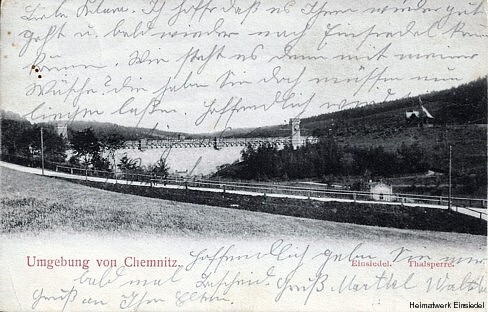 Liebe Klara. Ich hoffe daß es Ihnen wieder gut
geht u. bald wieder nach Einsiedel kom
men. Wie steht es denn mit meiner
Wäsche? den haben Sie doch müssen
liegen laßen. Hoffendlich
Umgebung von Chemnitz.
Einsiedel. Thalsperre.
Hoffendlich geben Sie mir
bald mal Bescheid. Gruß
Gruß an Ihre Eltern.
Heimatwerk Einsiedel